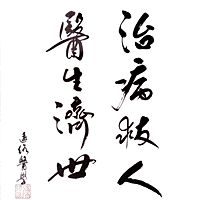 治病救人
醫生濟世